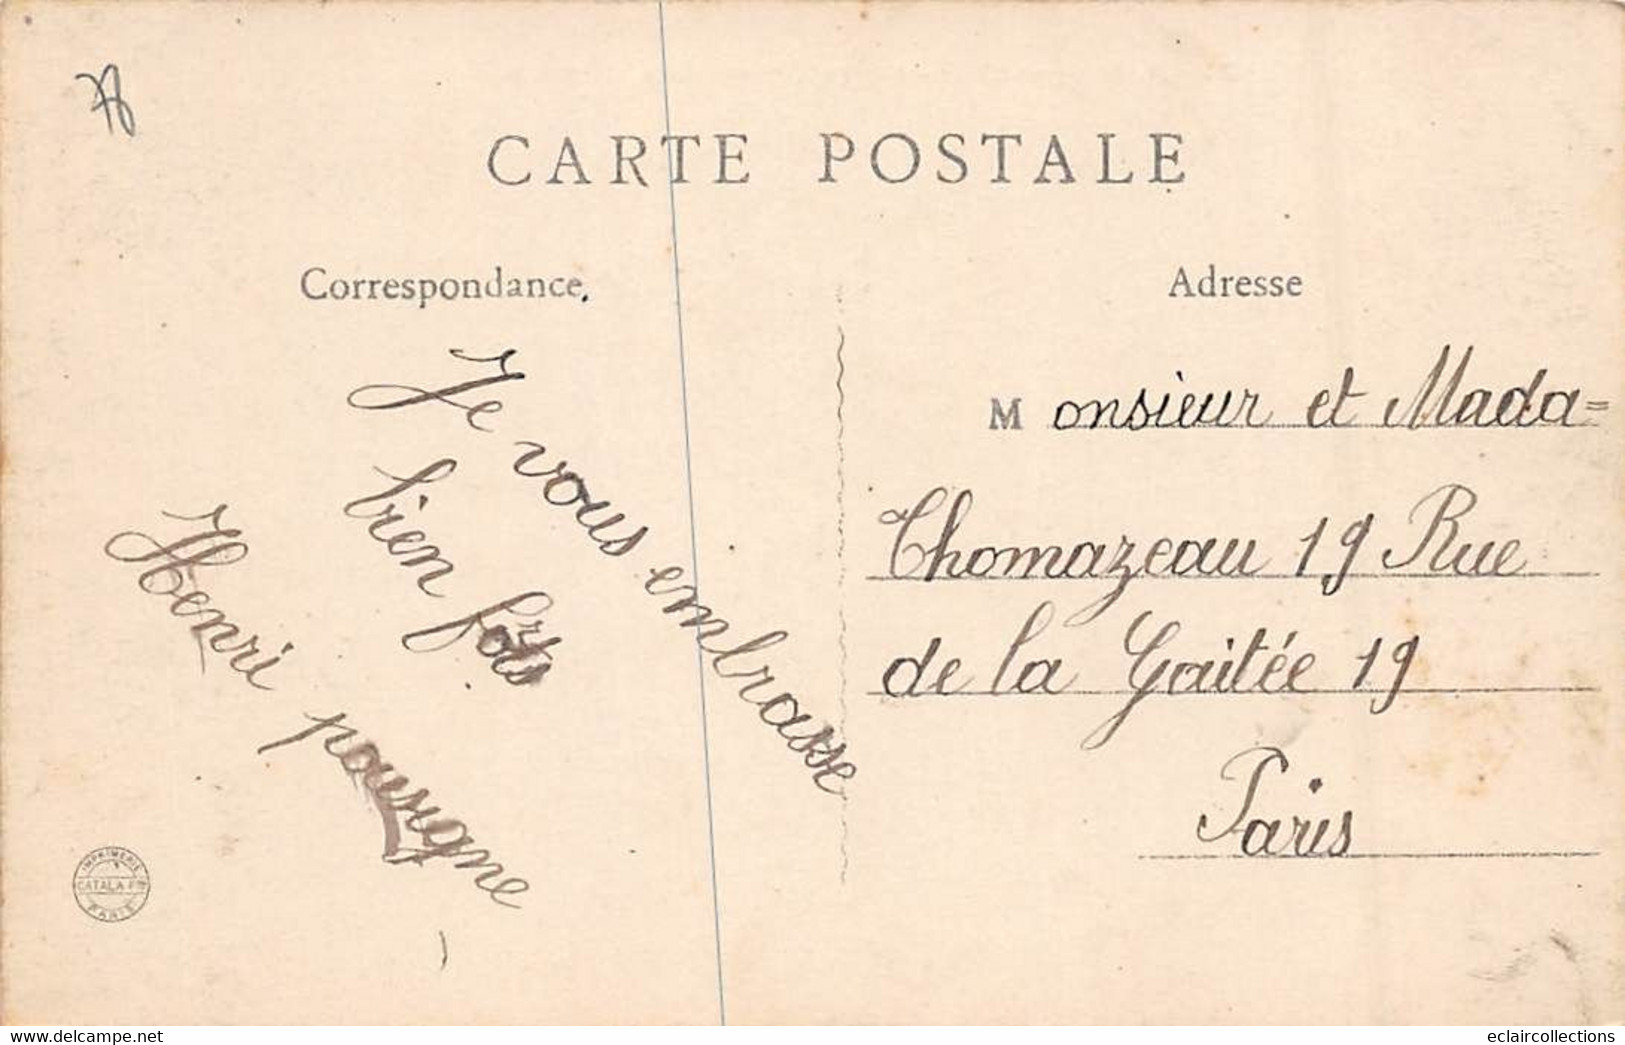 78
CARTE POSTALE
Correspondance.
Adresse
Je vous embrasse
bien forts
Henri pousigne
Monsieur et Mada=
Thomazeau 19 Rue
de la Gaitée 19
Paris
IMPRIMERIE
CATALA Fres
PARIS
www.delcampe.net
eclaircollections